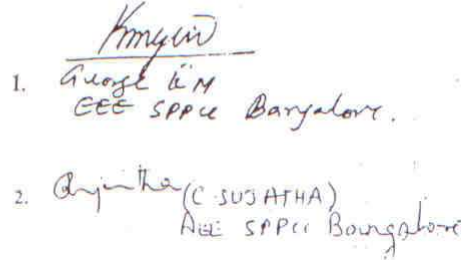 1. George K M
EEE SPPCC Bangalore.
2. Sujatha (C SUJATHA)
AEE SPPCC Bangalore